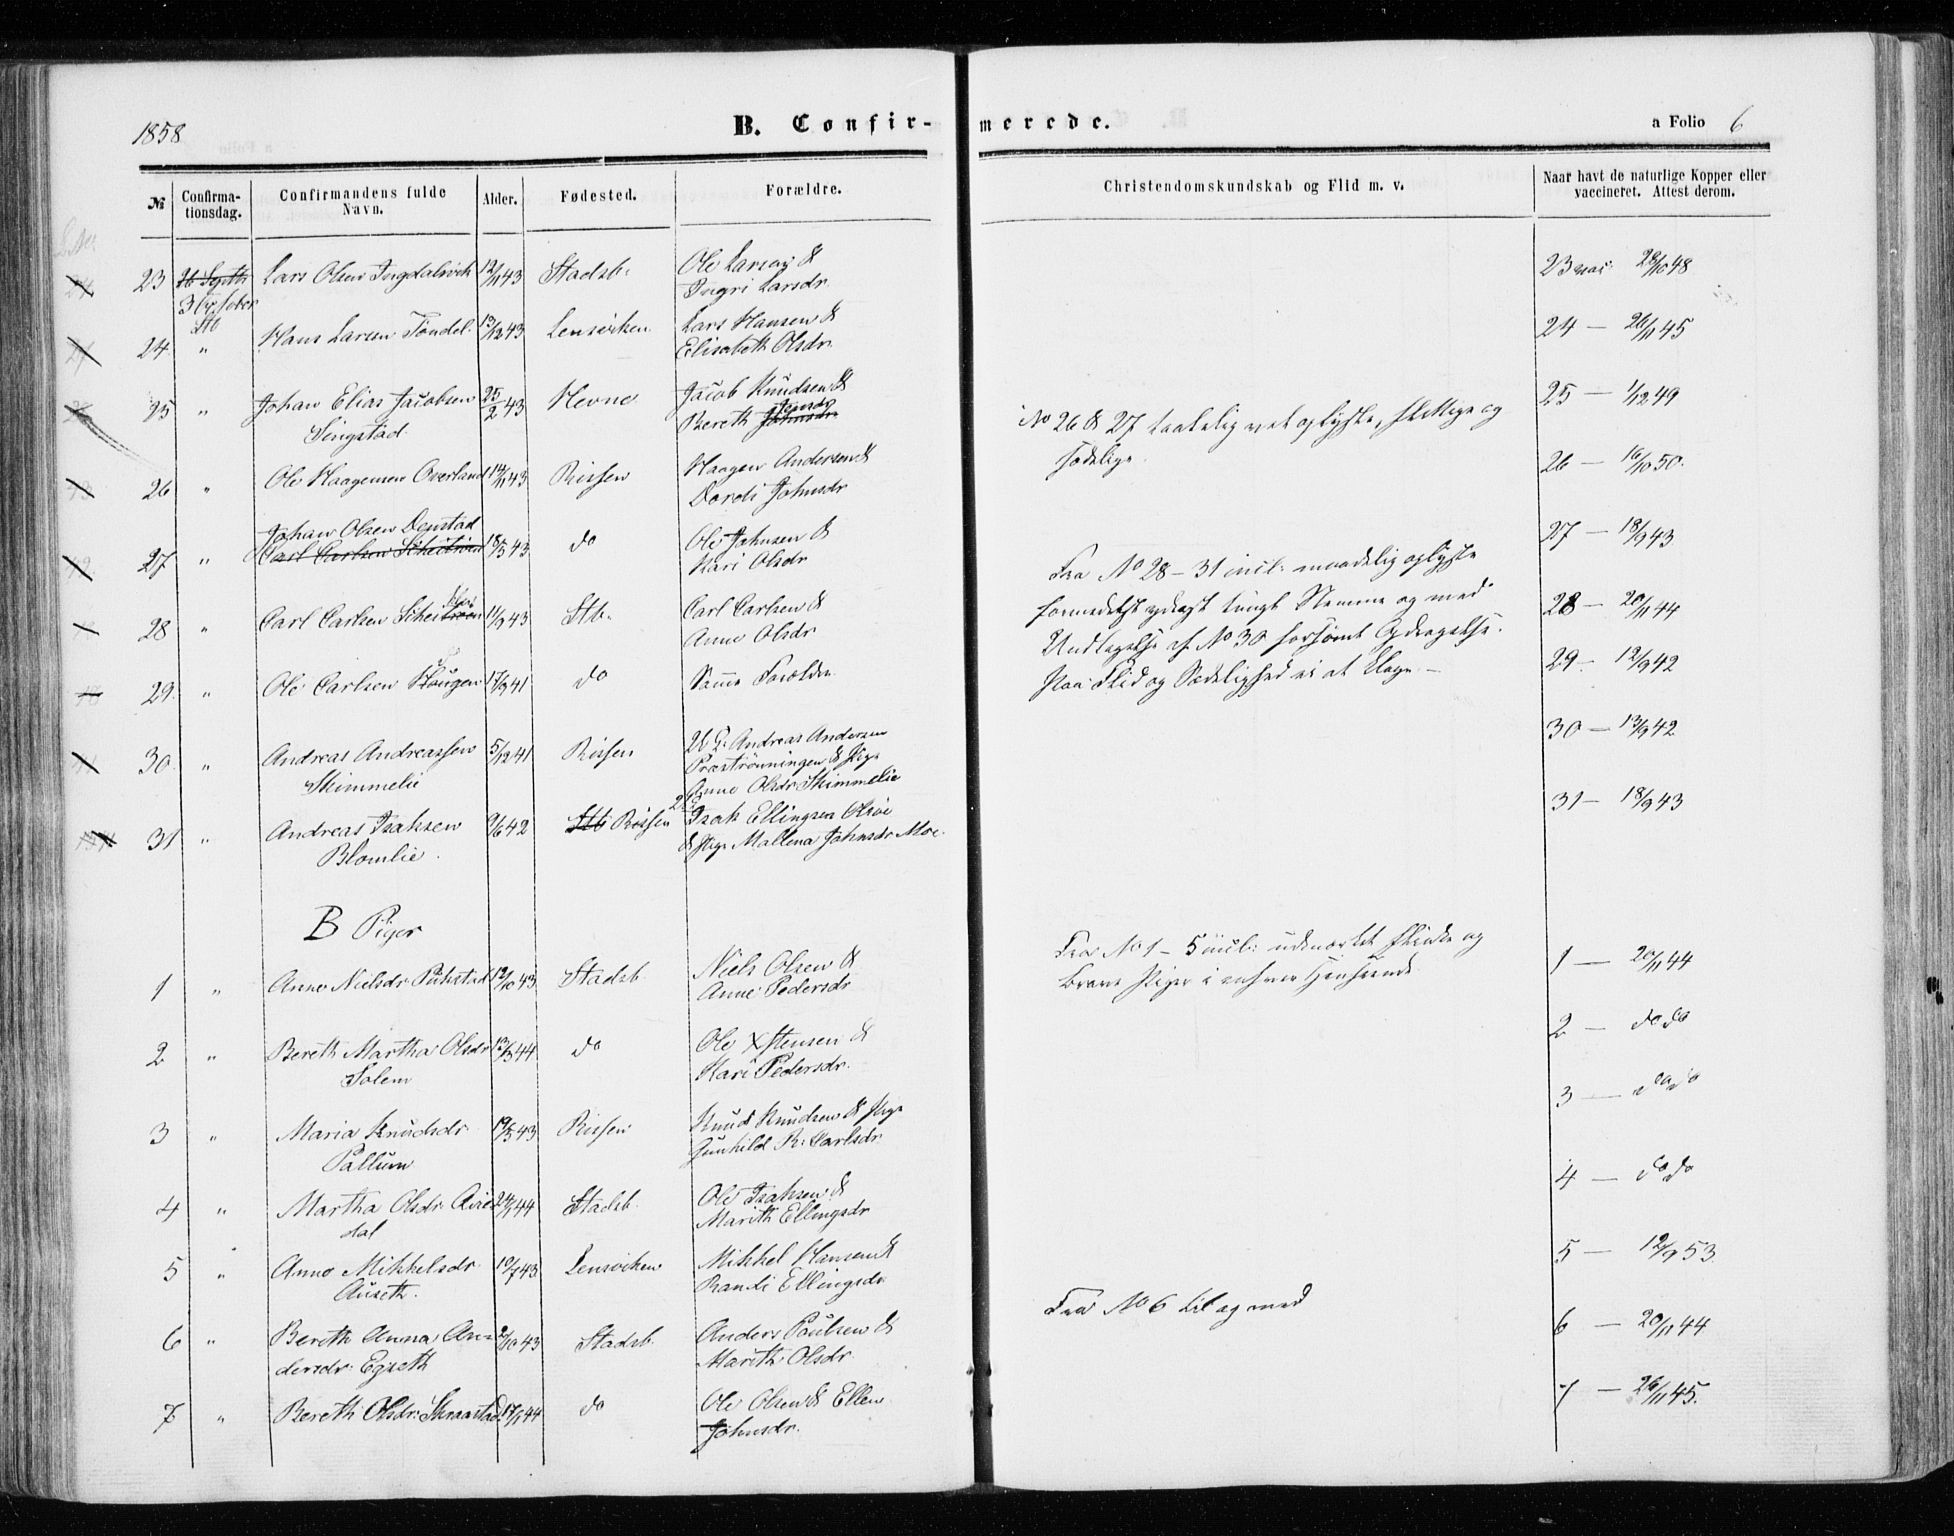 1858
B. Confirmerede.
a Folio 6
№ Confirmationsdag. Confirmandens fulde Navn. Alder. Fødested. Forældre. Christendomskundskab og Flid m. v. Naar havt de naturlige Kopper eller vaccineret. Attest derom.
23 Lars Olsen Ingdalsvik 12/11 43 Stadsb. Ole Larsen &
Ingri Larsdr.
23 vac: 28/10 48
3 October
Stb
24 " Hans Larsen Tøndel 13/12 43 Lensviken Lars Hansen &
Elisabeth Olsdr.
24 — 26/11 45
25 " Johan Elias Jacobsen 25/2 43 Hevne Jacob Knudsen &
Singstad Bereth Jensdr
25 — 1/12 49
No 26 & 27 taalelig vel oplyste, flittige og
sædelige.
26 " Ole Haagensen Overland 14/11 43 Rissen Haagen Andersen &
Dordi Johnsdr
26 — 16/10 50.
Johan Olsen Denstad
27 " Carl Carlsen 18/3 43 do Ole Johnsen &
Kari Olsdr
27 — 18/9 43
Fra No 28 – 31 incl: maadelig oplyste
28 " Carl Carlsen 11/9 43 Stb. Carl Carlsen &
Anne Olsdr
28 — 20/11 44
formedelst tungt Nemme og med
Undtagelse af No 30 forsømt Opdragelse.
29. " Ole Carlsen 17/9 41 do Samme Forældre
29 — 12/9 42
Paa Flid og Sædelighed ei at klage. —
30. " Andreas Andreassen 5/12 41 Rissen U. G: Andreas Andersen
Skimmelie Præstrønningen & Pige
Anne Olsdr Skimmelie
30 — 13/9 42
31 " Andreas Isaksen 9/6 42 Stb Rissen Isak Ellingsen
Blomlie. & Pige Mallena Johnsdr Moe.
31 — 18/9 43
B Piger
Fra No 1 – 5 incl: udmærket flinke og
brave Piger i enhver Henseende.
1 " Anne Nielsdr 12/10 43 Stadsb. Niels Olsen &
Anne Pedersdr
1 — 20/11 44
2 " Bereth Martha Olsdr 13/3 44 do Ole Xstensen &
Solem Kari Pedersdr.
2 — do do
3 " Maria Knudsdr 19/5 43 Rissen Knud Knudsen & Pige
Pallum Gunhild R: Carlsdr
3 — do do
4 " Martha Olsdr 24/1 44 Stadsb. Ole Isaksen &
dal Marith Ellingsdr
4 — do do
5 " Anne Mikkelsdr 10/7 43 Lensviken Mikkel Hansen &
Auseth. Randi Ellingsdr
5 — 12/9 53
Fra No 6 til og med
6 " Bereth Anna An- 2/10 43 Stadsb. Anders Paulsen &
dersdr: Egseth Marith Olsdr
6 — 20/11 44
7 " Bereth Olsdr: Skraastad 17/1 44 do Ole Olsen & Ellen
Johnsdr.
7 — 26/11 45.